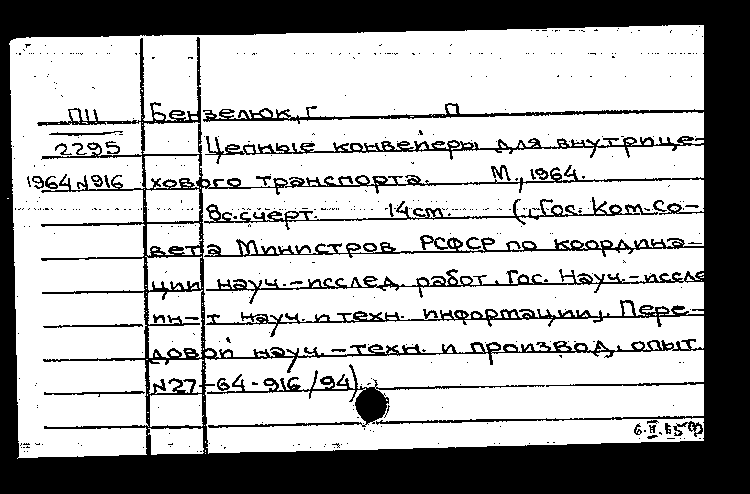 ПII Бензелюк, Г П
2295 Цепные конвейеры для внутрице-
1964 N916 хового транспорта. М., 1964.
8с.счерт. 14см. (Гос. Ком. Со-
вета Министров РСФСР по координа-
ции науч.-исслед. работ. Гос. Науч.-иссле
ин-т науч. и техн. информации). Пере-
довой науч.-техн. и производ. опыт.
N27-64-916/94)